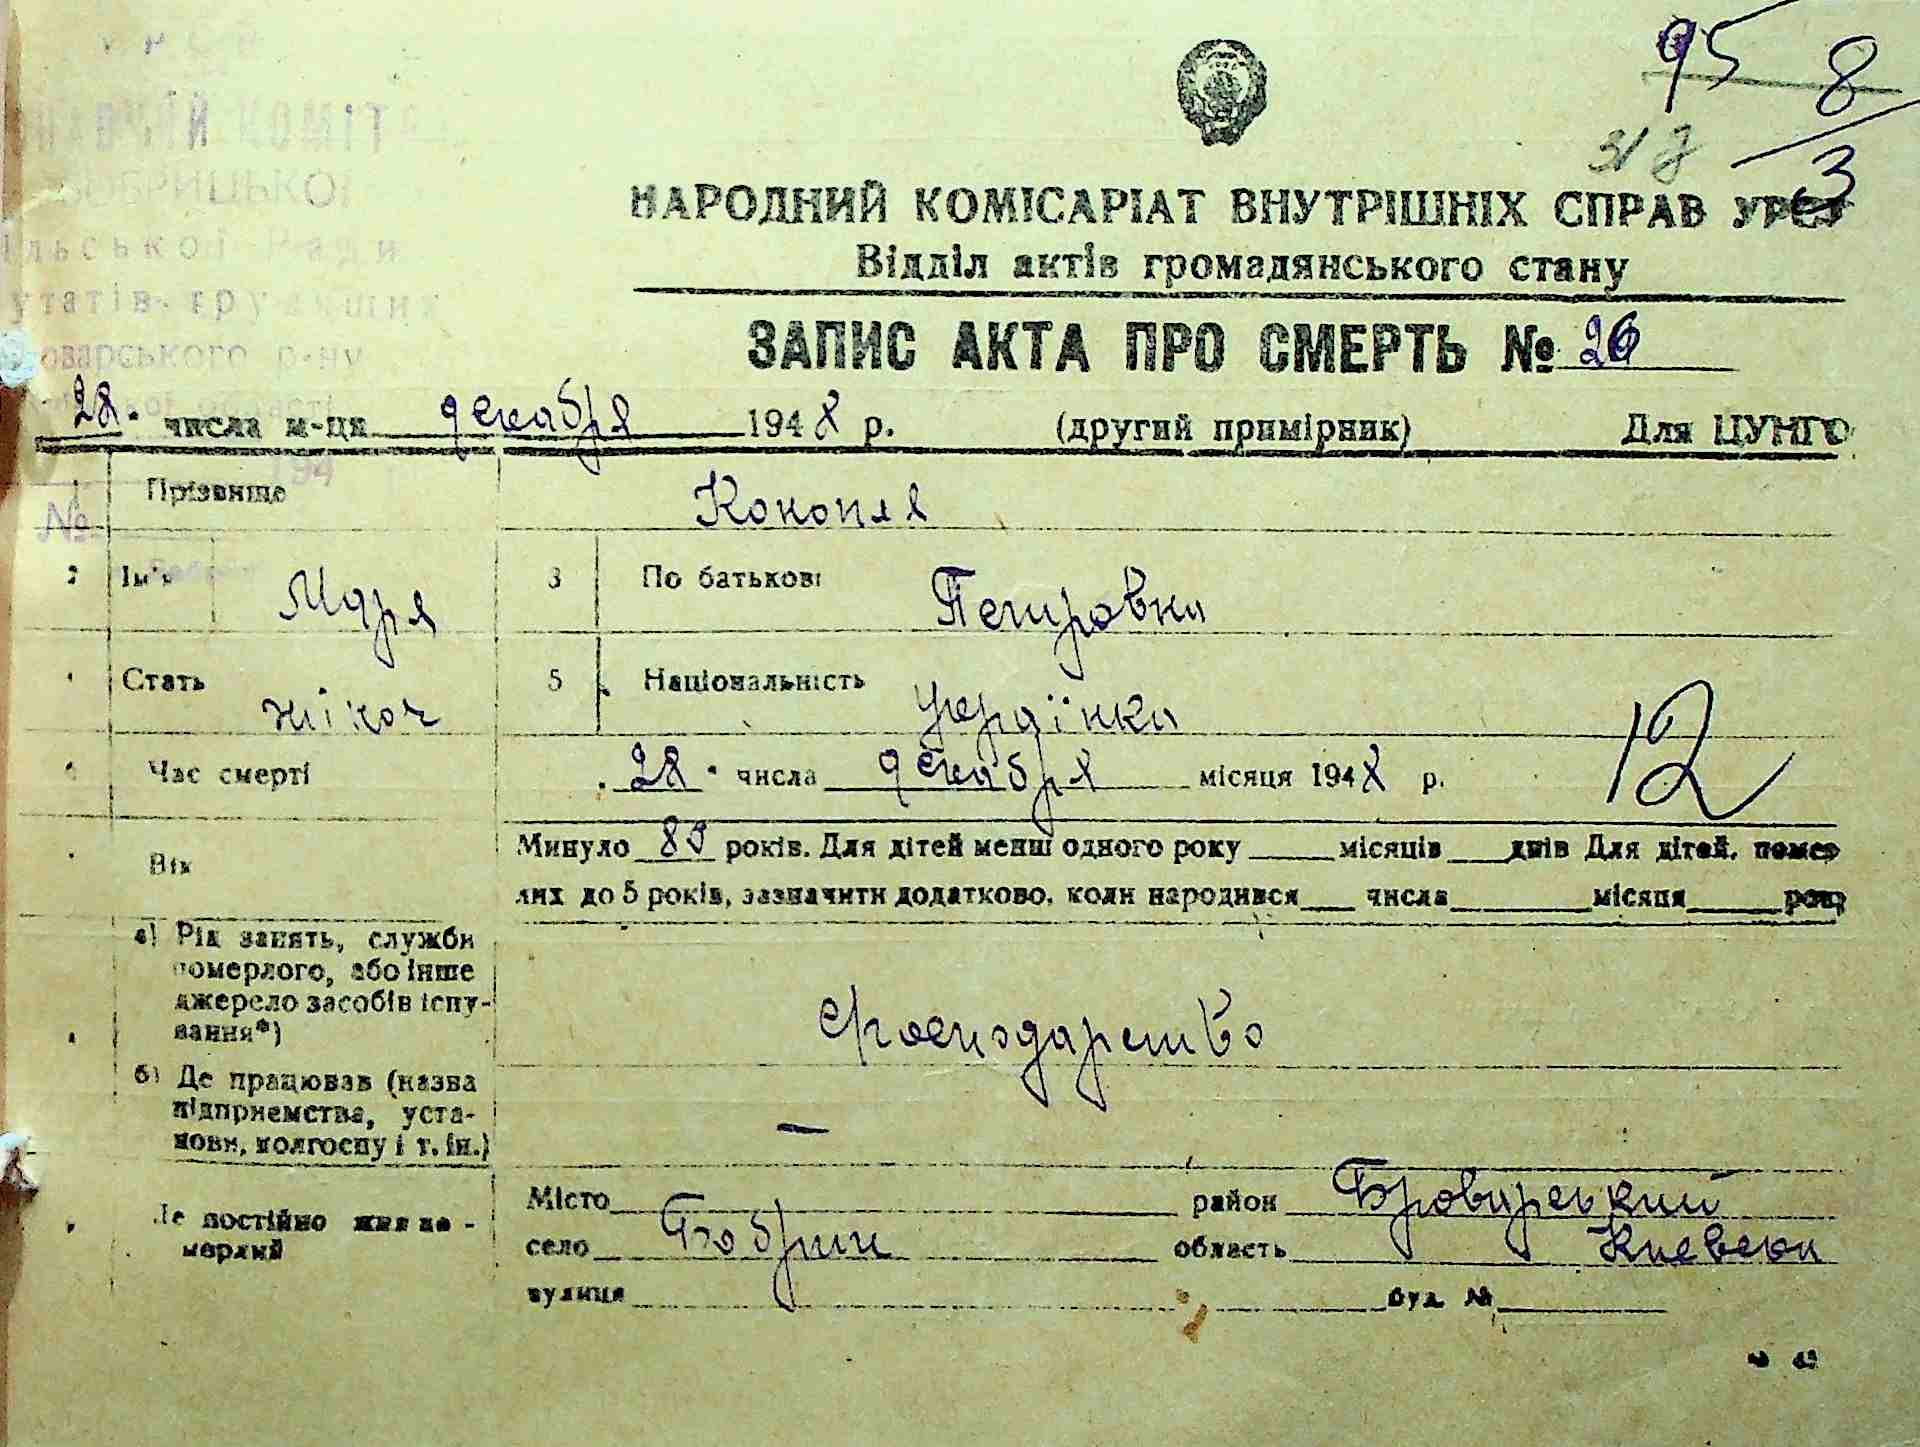 95 8
317 3
КОМІТ
БОБРИЦЬКОЇ
льської Ради
утатів трудящих
оварського р-ну
НАРОДНИЙ КОМІСАРІАТ ВНУТРІШНІХ СПРАВ УРСР
Відділ актів громадянського стану
ЗАПИС АКТА ПРО СМЕРТЬ № 26
28. числа м-ця декабря 1948 р. (другий примірник) Для ЦУНГО
1 Прізвище Конопля
№ 194
2 Ім'я Маря 3 По батькові Петровна
Стать жіноч 5 Національність українка
12
Час смерті 28. числа декабря місяця 1948 р.
Вік Минуло 85 років. Для дітей менш одного року ____ місяців ___ днів Для дітей, помер
лих до 5 років, зазначити додатково, коли народився ___ числа ______ місяця _____ року
а) Рід занять, служби
померлого, або інше
джерело засобів існу-
вання*)
господарство
б) Де працював (назва
підприємства, уста-
нови, колгоспу і т. ін.)
—
Де постійно жив по-
мерлий
Місто ______ район Броварський
село Бобрик область Киевска
вулиця ______ буд. № ______